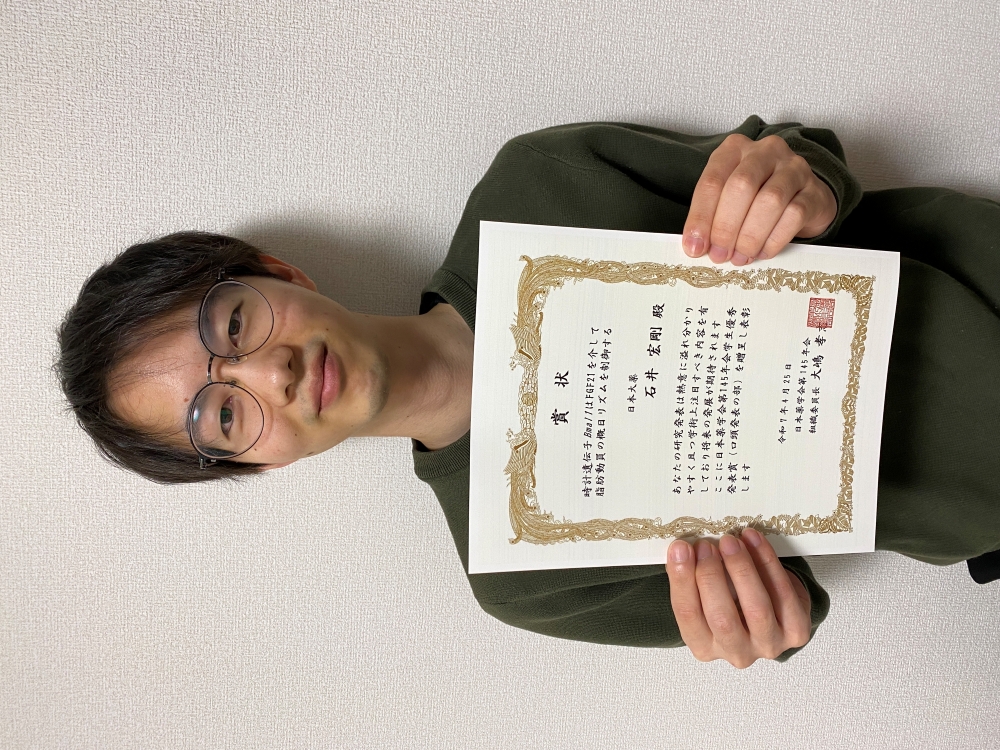 賞 状
時計遺伝子Bmal1はFGF21を介して
脂肪動員の概日リズムを制御する
日本大薬
石井 宏剛 殿
あなたの研究発表は熱意に溢れ分かり
やすく且つ学術上注目すべき内容を有
しており将来の発展が期待されます
ここに日本薬学会第145年会学生優秀
発表賞（口頭発表の部）を贈呈し表彰
します
令和7年4月25日
日本薬学会第145年会
組織委員長 大嶋 孝